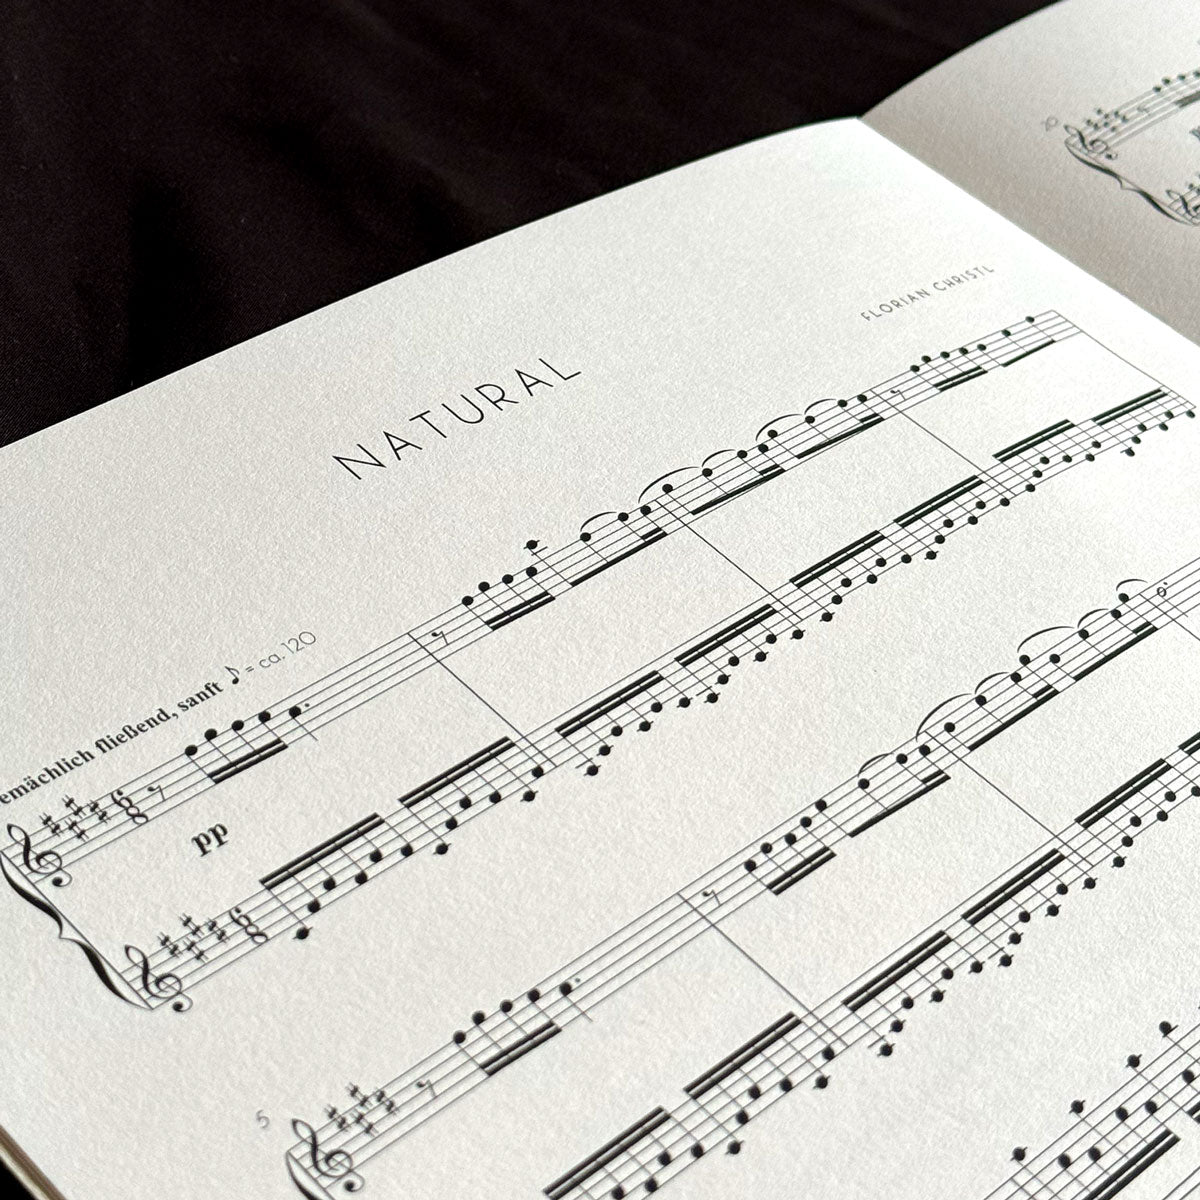 NATURAL
FLORIAN CHRISTL
emächlich fließend, sanft ♪ = ca. 120
6
8
pp
6
8
5